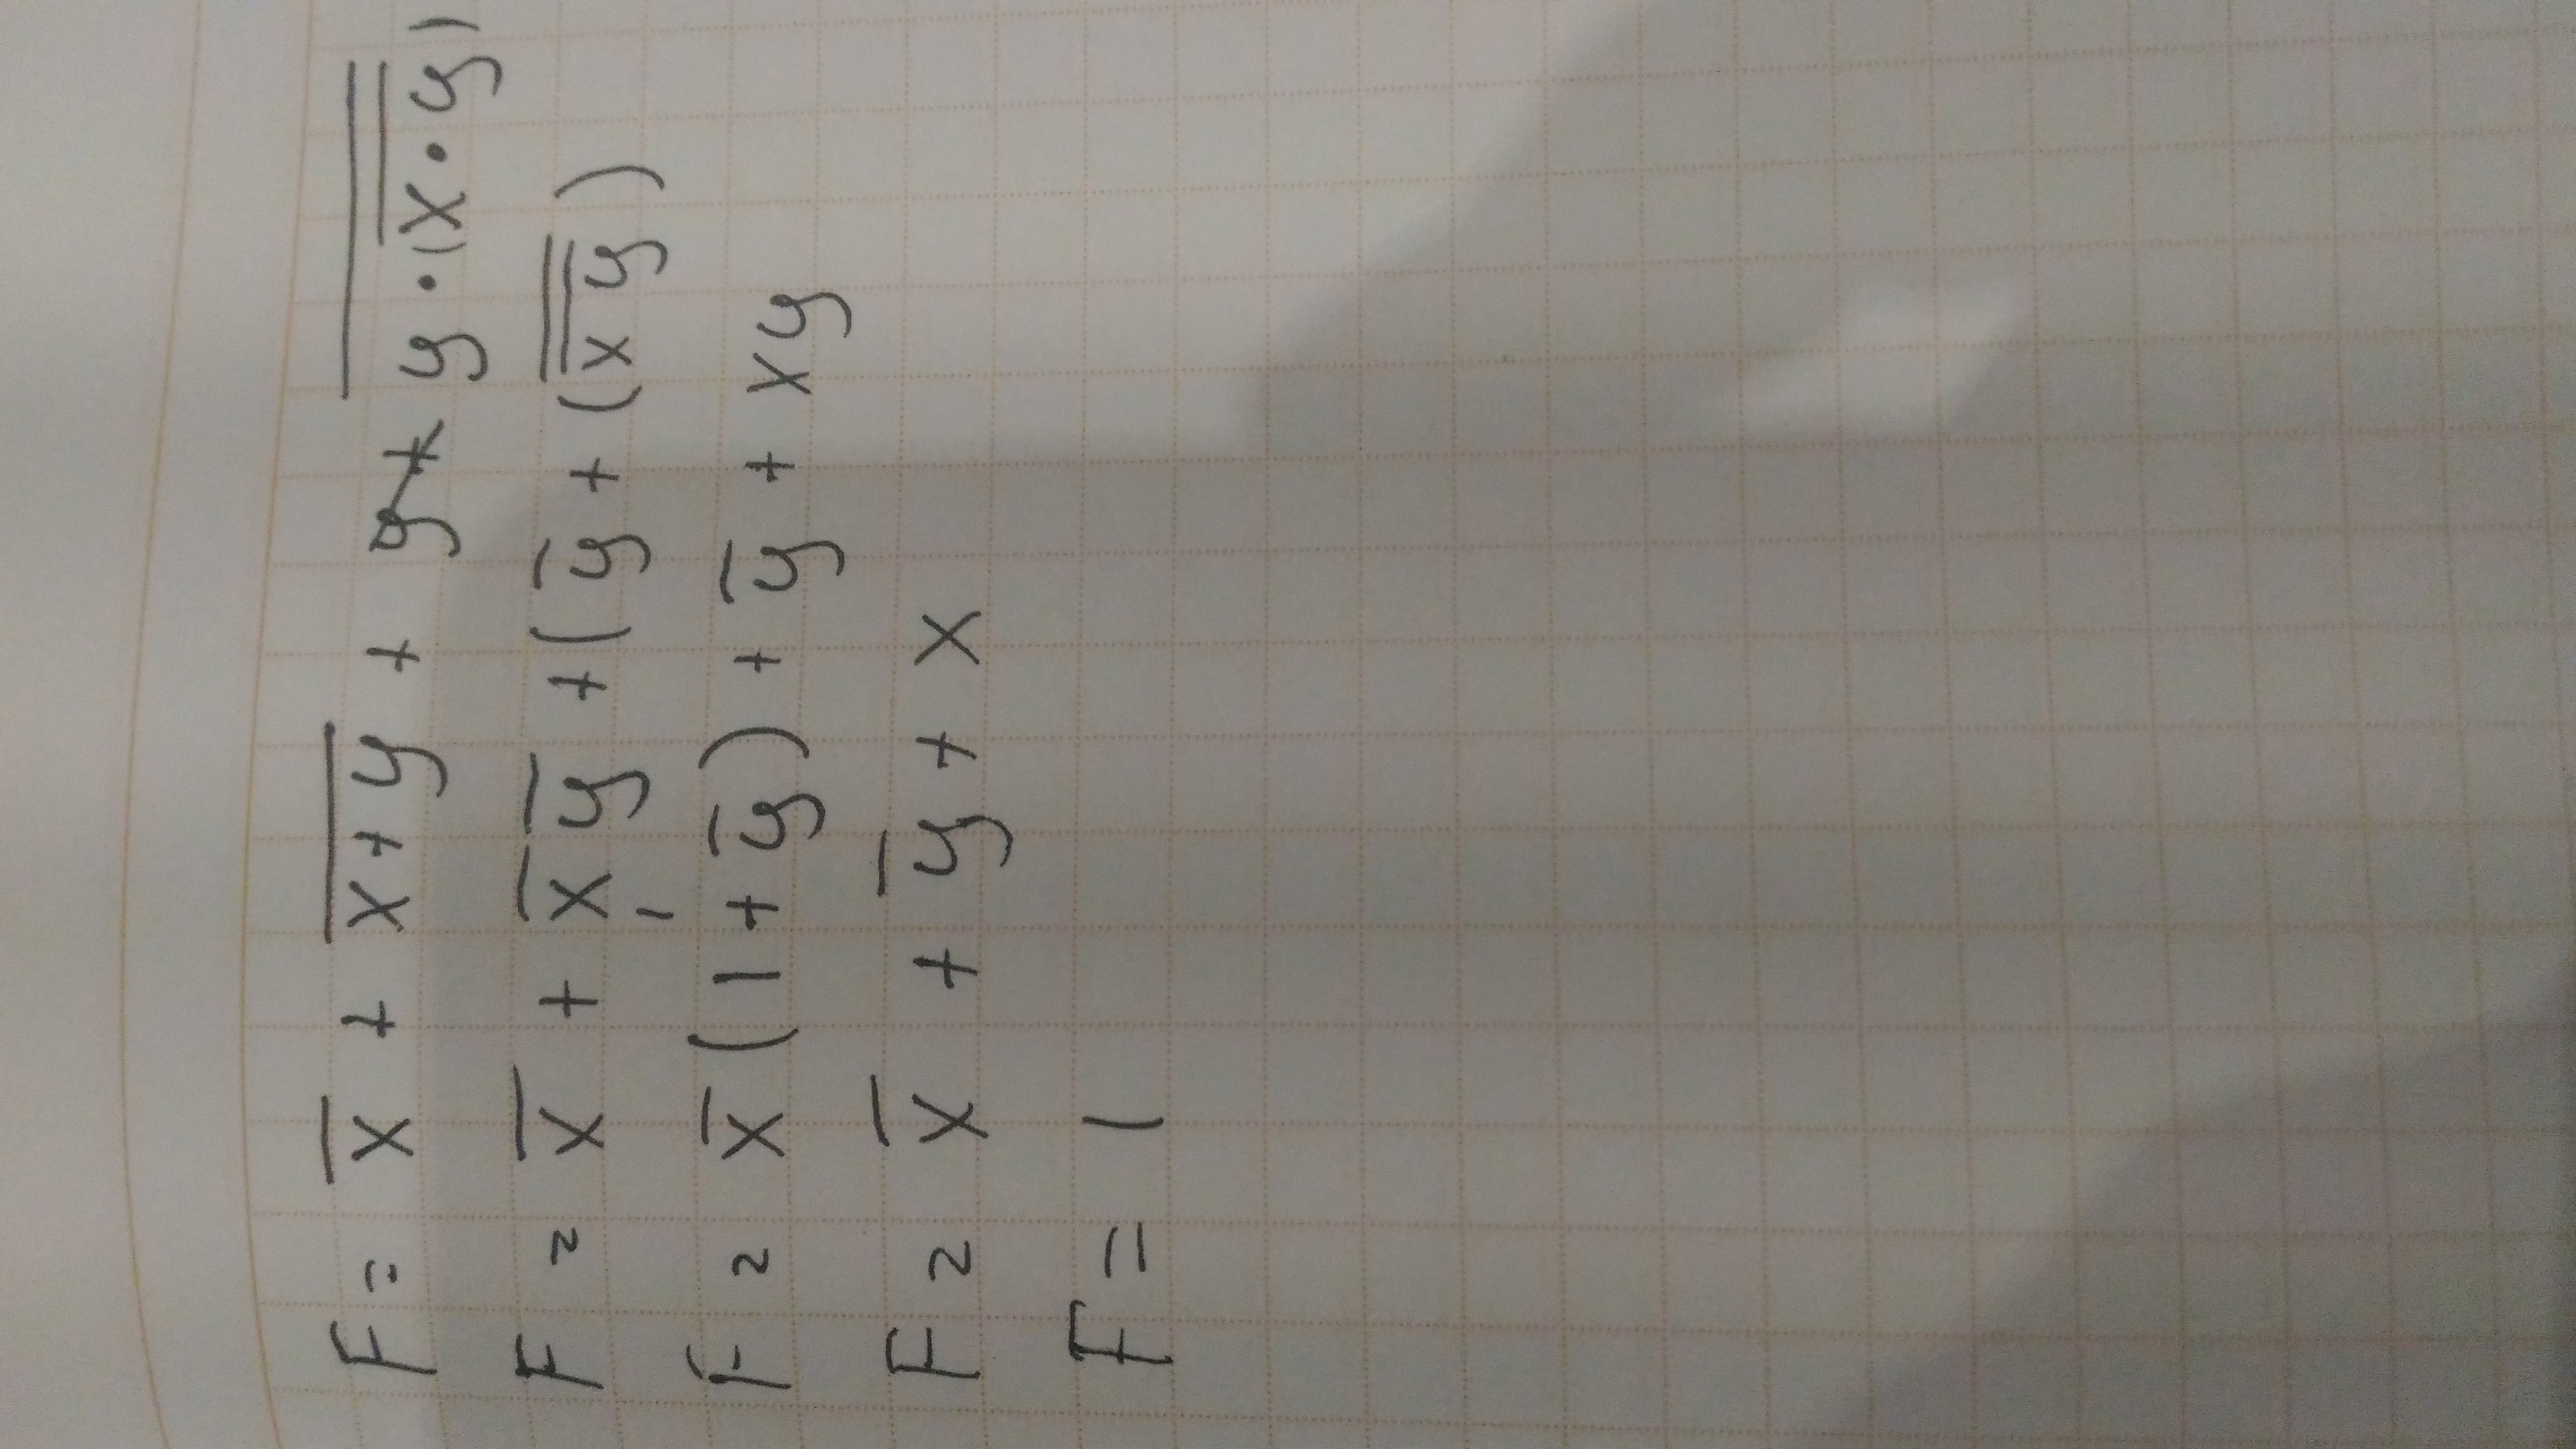 F = x̅ + \overline{x+y} + \overline{y·\overline{(x·y)}}
F = x̅ + x̅ y̅ + (y̅ + (\overline{\overline{x y}})
F = x̅ (1 + y̅) + y̅ + xy
F = x̅ + y̅ + x
F = 1